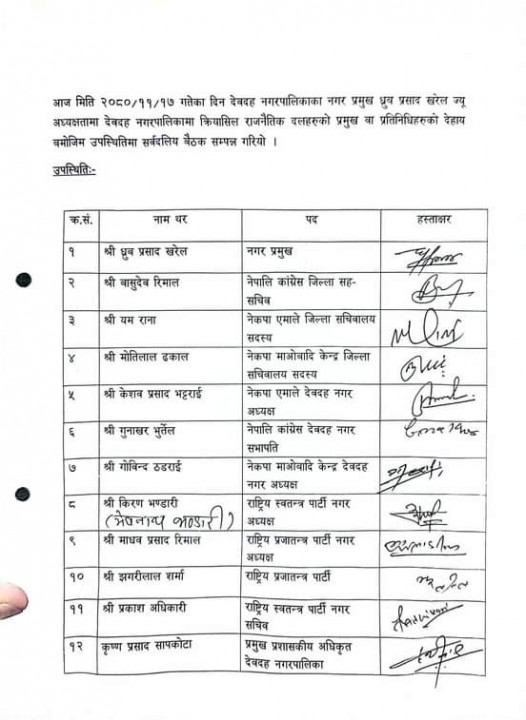 आज मिति २०८०/११/१७ गतेका दिन देवदह नगरपालिकाका नगर प्रमुख ध्रुव प्रसाद खरेल ज्यू
अध्यक्षतामा देवदह नगरपालिकामा क्रियासिल राजनैतिक दलहरुको प्रमुख वा प्रतिनिधिहरुको देहाय
बमोजिम उपस्थितिमा सर्वदलिय बैठक सम्पन्न गरियो ।
उपस्थितिः-
क्र.सं. नाम थर पद हस्ताक्षर
१ श्री ध्रुव प्रसाद खरेल नगर प्रमुख
२ श्री वासुदेव रिमाल नेपालि कांग्रेस जिल्ला सह-
सचिव
३ श्री यम राना नेकपा एमाले जिल्ला सचिवालय
सदस्य
४ श्री मोतिलाल ढकाल नेकपा माओवादि केन्द्र जिल्ला
सचिवालय सदस्य
५ श्री केशव प्रसाद भट्टराई नेकपा एमाले देवदह नगर
अध्यक्ष
६ श्री गुनाखर भुर्तेल नेपालि कांग्रेस देवदह नगर
सभापति
७ श्री गोविन्द ठडराई नेकपा माओवादि केन्द्र देवदह
नगर अध्यक्ष
८ श्री किरण भण्डारी राष्ट्रिय स्वतन्त्र पार्टी नगर
भण्डारी) अध्यक्ष
९ श्री माधव प्रसाद रिमाल राष्ट्रिय प्रजातन्त्र पार्टी नगर
अध्यक्ष
१० श्री झगरीलाल शर्मा राष्ट्रिय प्रजातन्त्र पार्टी
११ श्री प्रकाश अधिकारी राष्ट्रिय स्वतन्त्र पार्टी नगर
सचिव
१२ कृष्ण प्रसाद सापकोटा प्रमुख प्रशासकीय अधिकृत
देवदह नगरपालिका